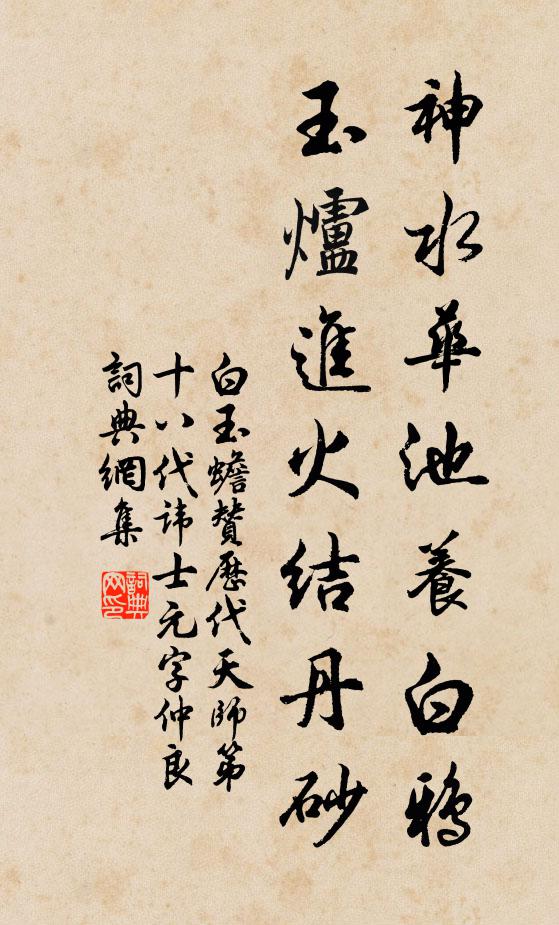 神水華池養白鴉
玉爐進火結丹砂
白玉蟾贊歷代天師第
十八代諱士元字仲良
詞典網集
詞典網印